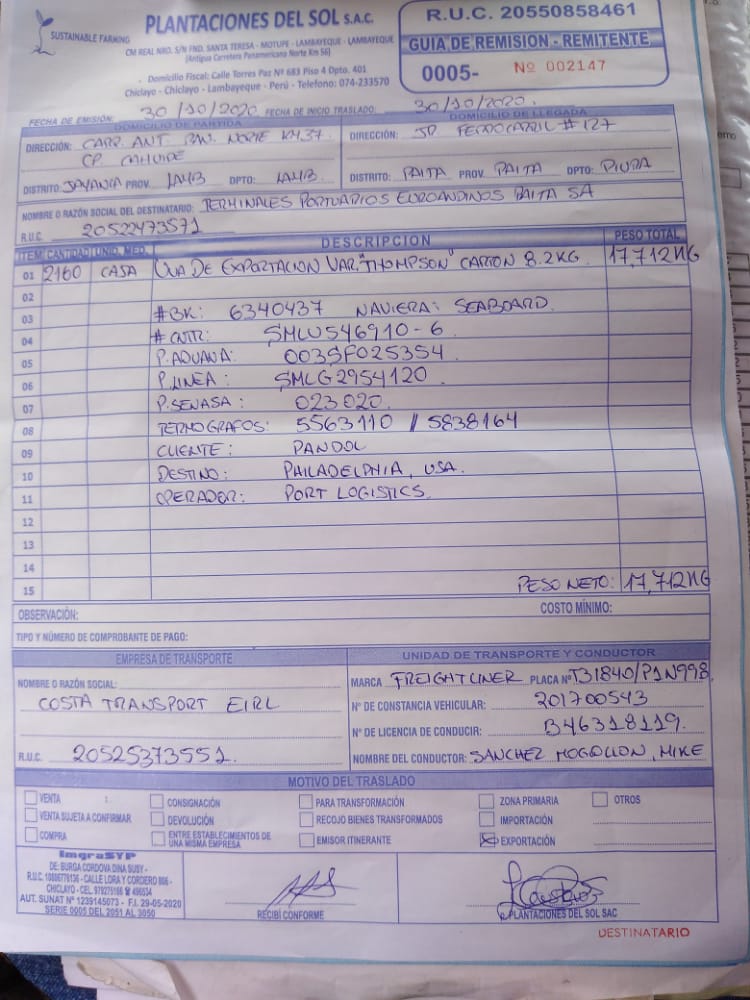 SUSTAINABLE FARMING
PLANTACIONES DEL SOL S.A.C.
CM REAL NRO. S/N FND. SANTA TERESA - MOTUPE - LAMBAYEQUE - LAMBAYEQUE
(Antigua Carretera Panamericana Norte Km 56)
Domicilio Fiscal: Calle Torres Paz Nº 683 Piso 4 Dpto. 401
Chiclayo - Chiclayo - Lambayeque - Perú - Telefono: 074-233570
R.U.C. 20550858461
GUIA DE REMISION - REMITENTE
0005- Nº 002147
FECHA DE EMISIÓN: 30/10/2020 FECHA DE INICIO TRASLADO: 30/10/2020.
DOMICILIO DE PARTIDA
DIRECCIÓN: CARR. ANT. PAN. NORTE KM 37
CP. CAHUIDE
DISTRITO: JAYANCA PROV. LAMB DPTO: LAMB.
DOMICILIO DE LLEGADA
DIRECCIÓN: JR FERROCARRIL # 127
DISTRITO: PAITA PROV. PAITA DPTO: PIURA
NOMBRE O RAZÓN SOCIAL DEL DESTINATARIO: TERMINALES PORTUARIOS EUROANDINOS PAITA SA
R.U.C. 20522473571
ITEM CANTIDAD UNID. MED. DESCRIPCION PESO TOTAL
01 2160 CAJA UVA DE EXPORTACION VAR. "THOMPSON" CARTON 8.2KG 17,712 KG
02
03 #BK: 6340437 NAVIERA: SEABOARD.
04 # CNTR: SMLU546910-6
05 P. ADUANA: 003SF025354
06 P. LINEA: SMLG2954120
07 P. SENASA: 023020.
08 TERMOGRAFOS: 5563110 / 5838164
09 CLIENTE: PANDOL
10 DESTINO: PHILADELPHIA, USA.
11 OPERADOR: PORT LOGISTICS.
12
13
14
15 PESO NETO: 17,712 KG
OBSERVACIÓN: COSTO MÍNIMO:
TIPO Y NÚMERO DE COMPROBANTE DE PAGO:
EMPRESA DE TRANSPORTE
NOMBRE O RAZÓN SOCIAL:
COSTA TRANSPORT EIRL
R.U.C. 20525373551.
UNIDAD DE TRANSPORTE Y CONDUCTOR
MARCA FREIGHTLINER PLACA Nº T3I840/P1N998
Nº DE CONSTANCIA VEHICULAR: 201700543
Nº DE LICENCIA DE CONDUCIR: B46318119.
NOMBRE DEL CONDUCTOR: SANCHEZ MOGOLLON, MIKE
MOTIVO DEL TRASLADO
VENTA CONSIGNACIÓN PARA TRANSFORMACIÓN ZONA PRIMARIA OTROS
VENTA SUJETA A CONFIRMAR DEVOLUCIÓN RECOJO BIENES TRANSFORMADOS IMPORTACIÓN
COMPRA ENTRE ESTABLECIMIENTOS DE UNA MISMA EMPRESA EMISOR ITINERANTE EXPORTACIÓN
ImgraSYP
DE: BURGA CORDOVA DINA SUSY -
R.U.C. 10806778136 - CALLE LORA Y CORDERO 806 -
CHICLAYO - CEL. 979275166 ☎ 496534
AUT. SUNAT Nº 1239145073 - F.I. 29-05-2020
SERIE 0005 DEL 2051 AL 3050
RECIBÍ CONFORME
PLANTACIONES DEL SOL SAC
DESTINATARIO